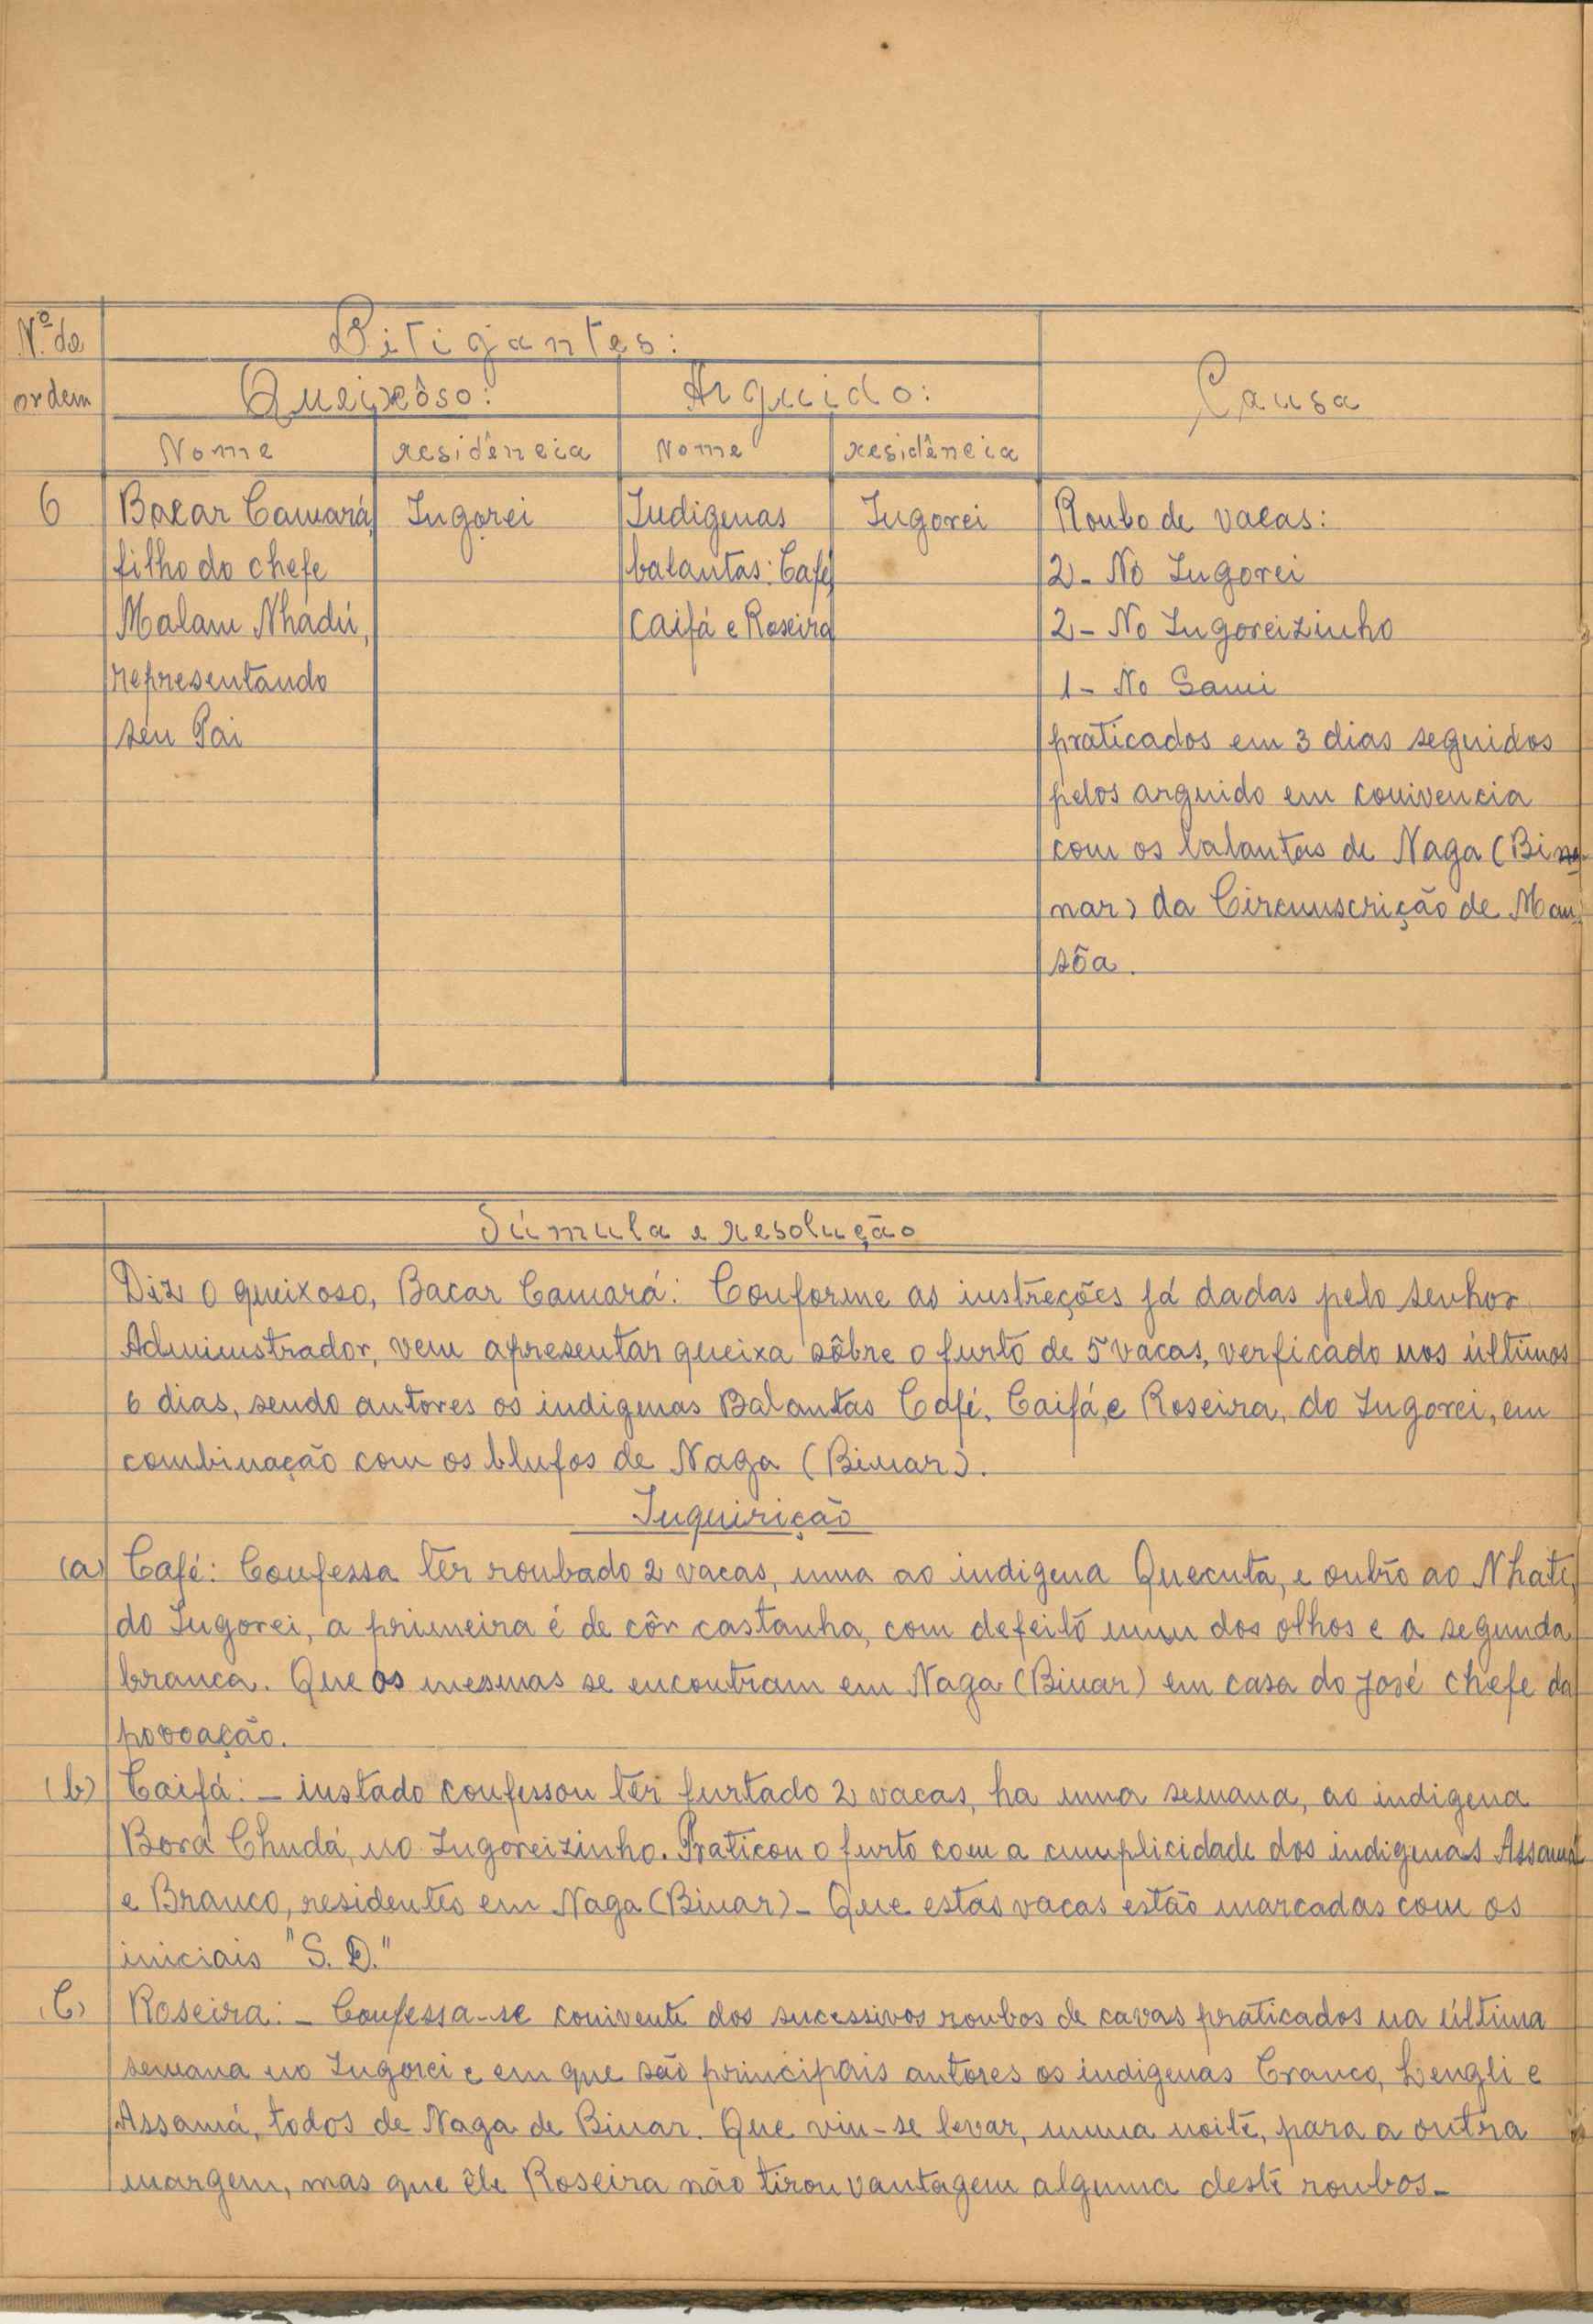 Nº de
ordem
Litigantes:
Queixôso:
Arguido:
Causa
Nome
residência
Nome
residência
6
Bacar Camará,
filho do chefe
Malam Nhadú,
representando
seu Pai
Ingorei
Indigenas
balantas: Café,
Caifá e Roseira
Ingorei
Roubo de vacas:
2- No Ingorei
2- No Ingoreizinho
1- No Sami
praticados em 3 dias seguidos
pelos arguido em conivencia
com os balantas de Naga (Bi
nar) da Circunscrição de Man-
sôa.
Súmula e resolução
Diz o queixoso, Bacar Camará: Conforme as instreções já dadas pelo senhor
Administrador, vem apresentar queixa sôbre o furto de 5 vacas, verficado nos últimos
6 dias, sendo autores os indigenas Balantas Café, Caifá, e Roseira, do Ingorei, em
combinação com os blufos de Naga (Binar).
Inquirição
(a) Café: Confessa ter roubado 2 vacas, uma ao indigena Quecuta, e outro ao Nhate,
do Ingorei, a primeira é de côr castanha, com defeito num dos olhos e a segunda
branca. Que as mesmas se encontram em Naga (Binar) em casa do José chefe da
povoação.
(b) Caifá: - instado confessou ter furtado 2 vacas, ha uma semana, ao indigena
Bora Chudá, no Ingoreizinho. Praticou o furto com a cumplicidade dos indigenas Assamá
e Branco, residentes em Naga (Binar)- Que estas vacas estão marcadas com as
iniciais "S. D."
(C) Roseira: - Confessa-se conivente dos sucessivos roubos de cavas praticados na última
semana no Ingorei e em que são principais autores os indigenas Branco, Lengli e
Assamá, todos de Naga de Binar. Que viu-se levar, numa noite, para a outra
margem, mas que êle Roseira não tirou vantagem alguma deste roubos-